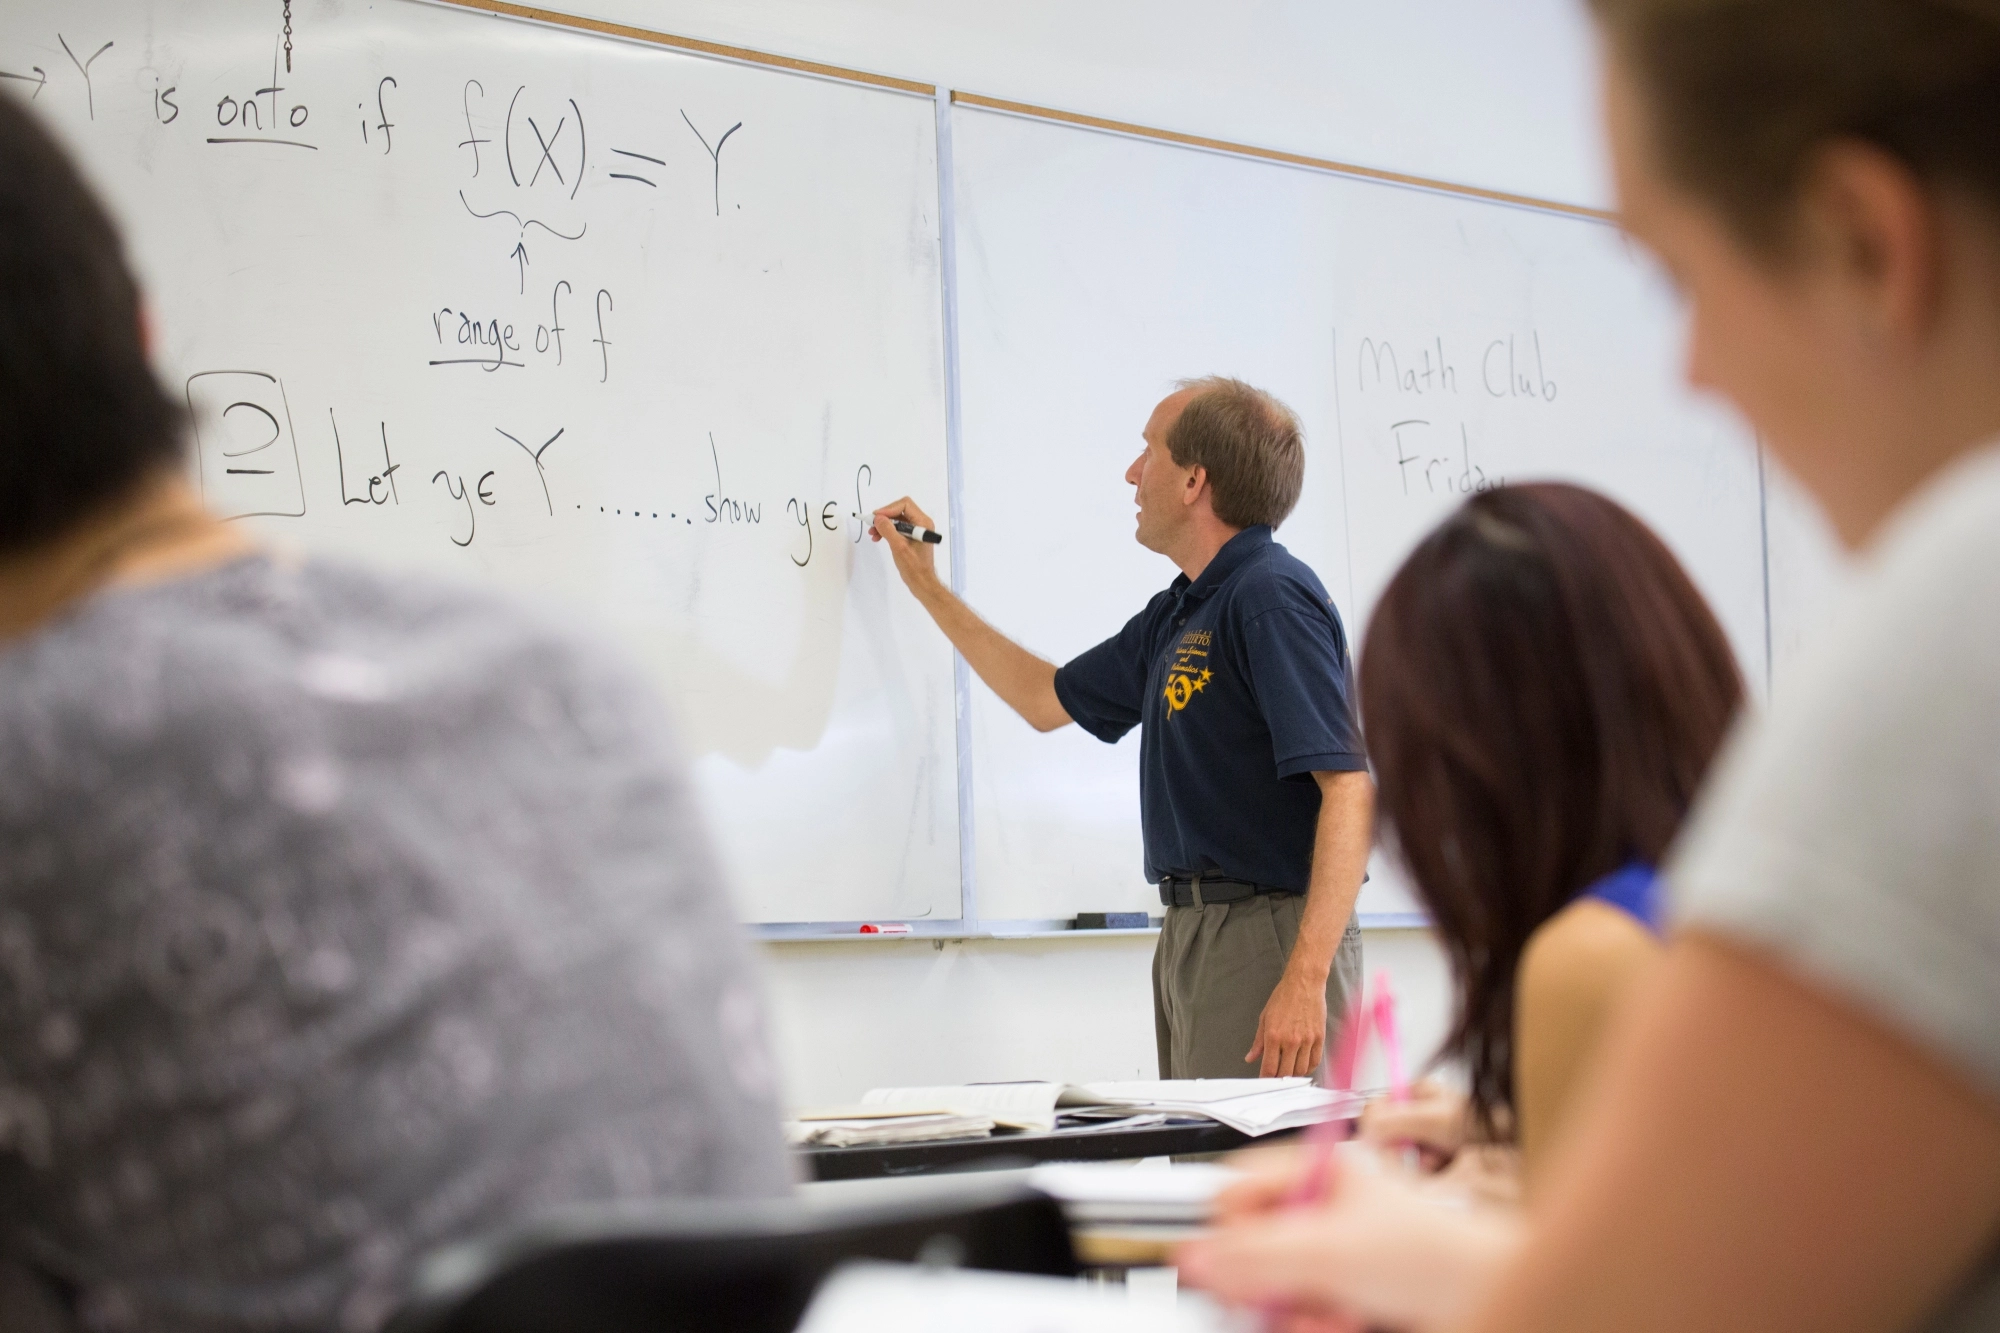 → Y is onto if f(X) = Y.
↑
range of f
⊇ Let y ∈ Y ........ show y ∈ f
Math Club
Friday
and
50